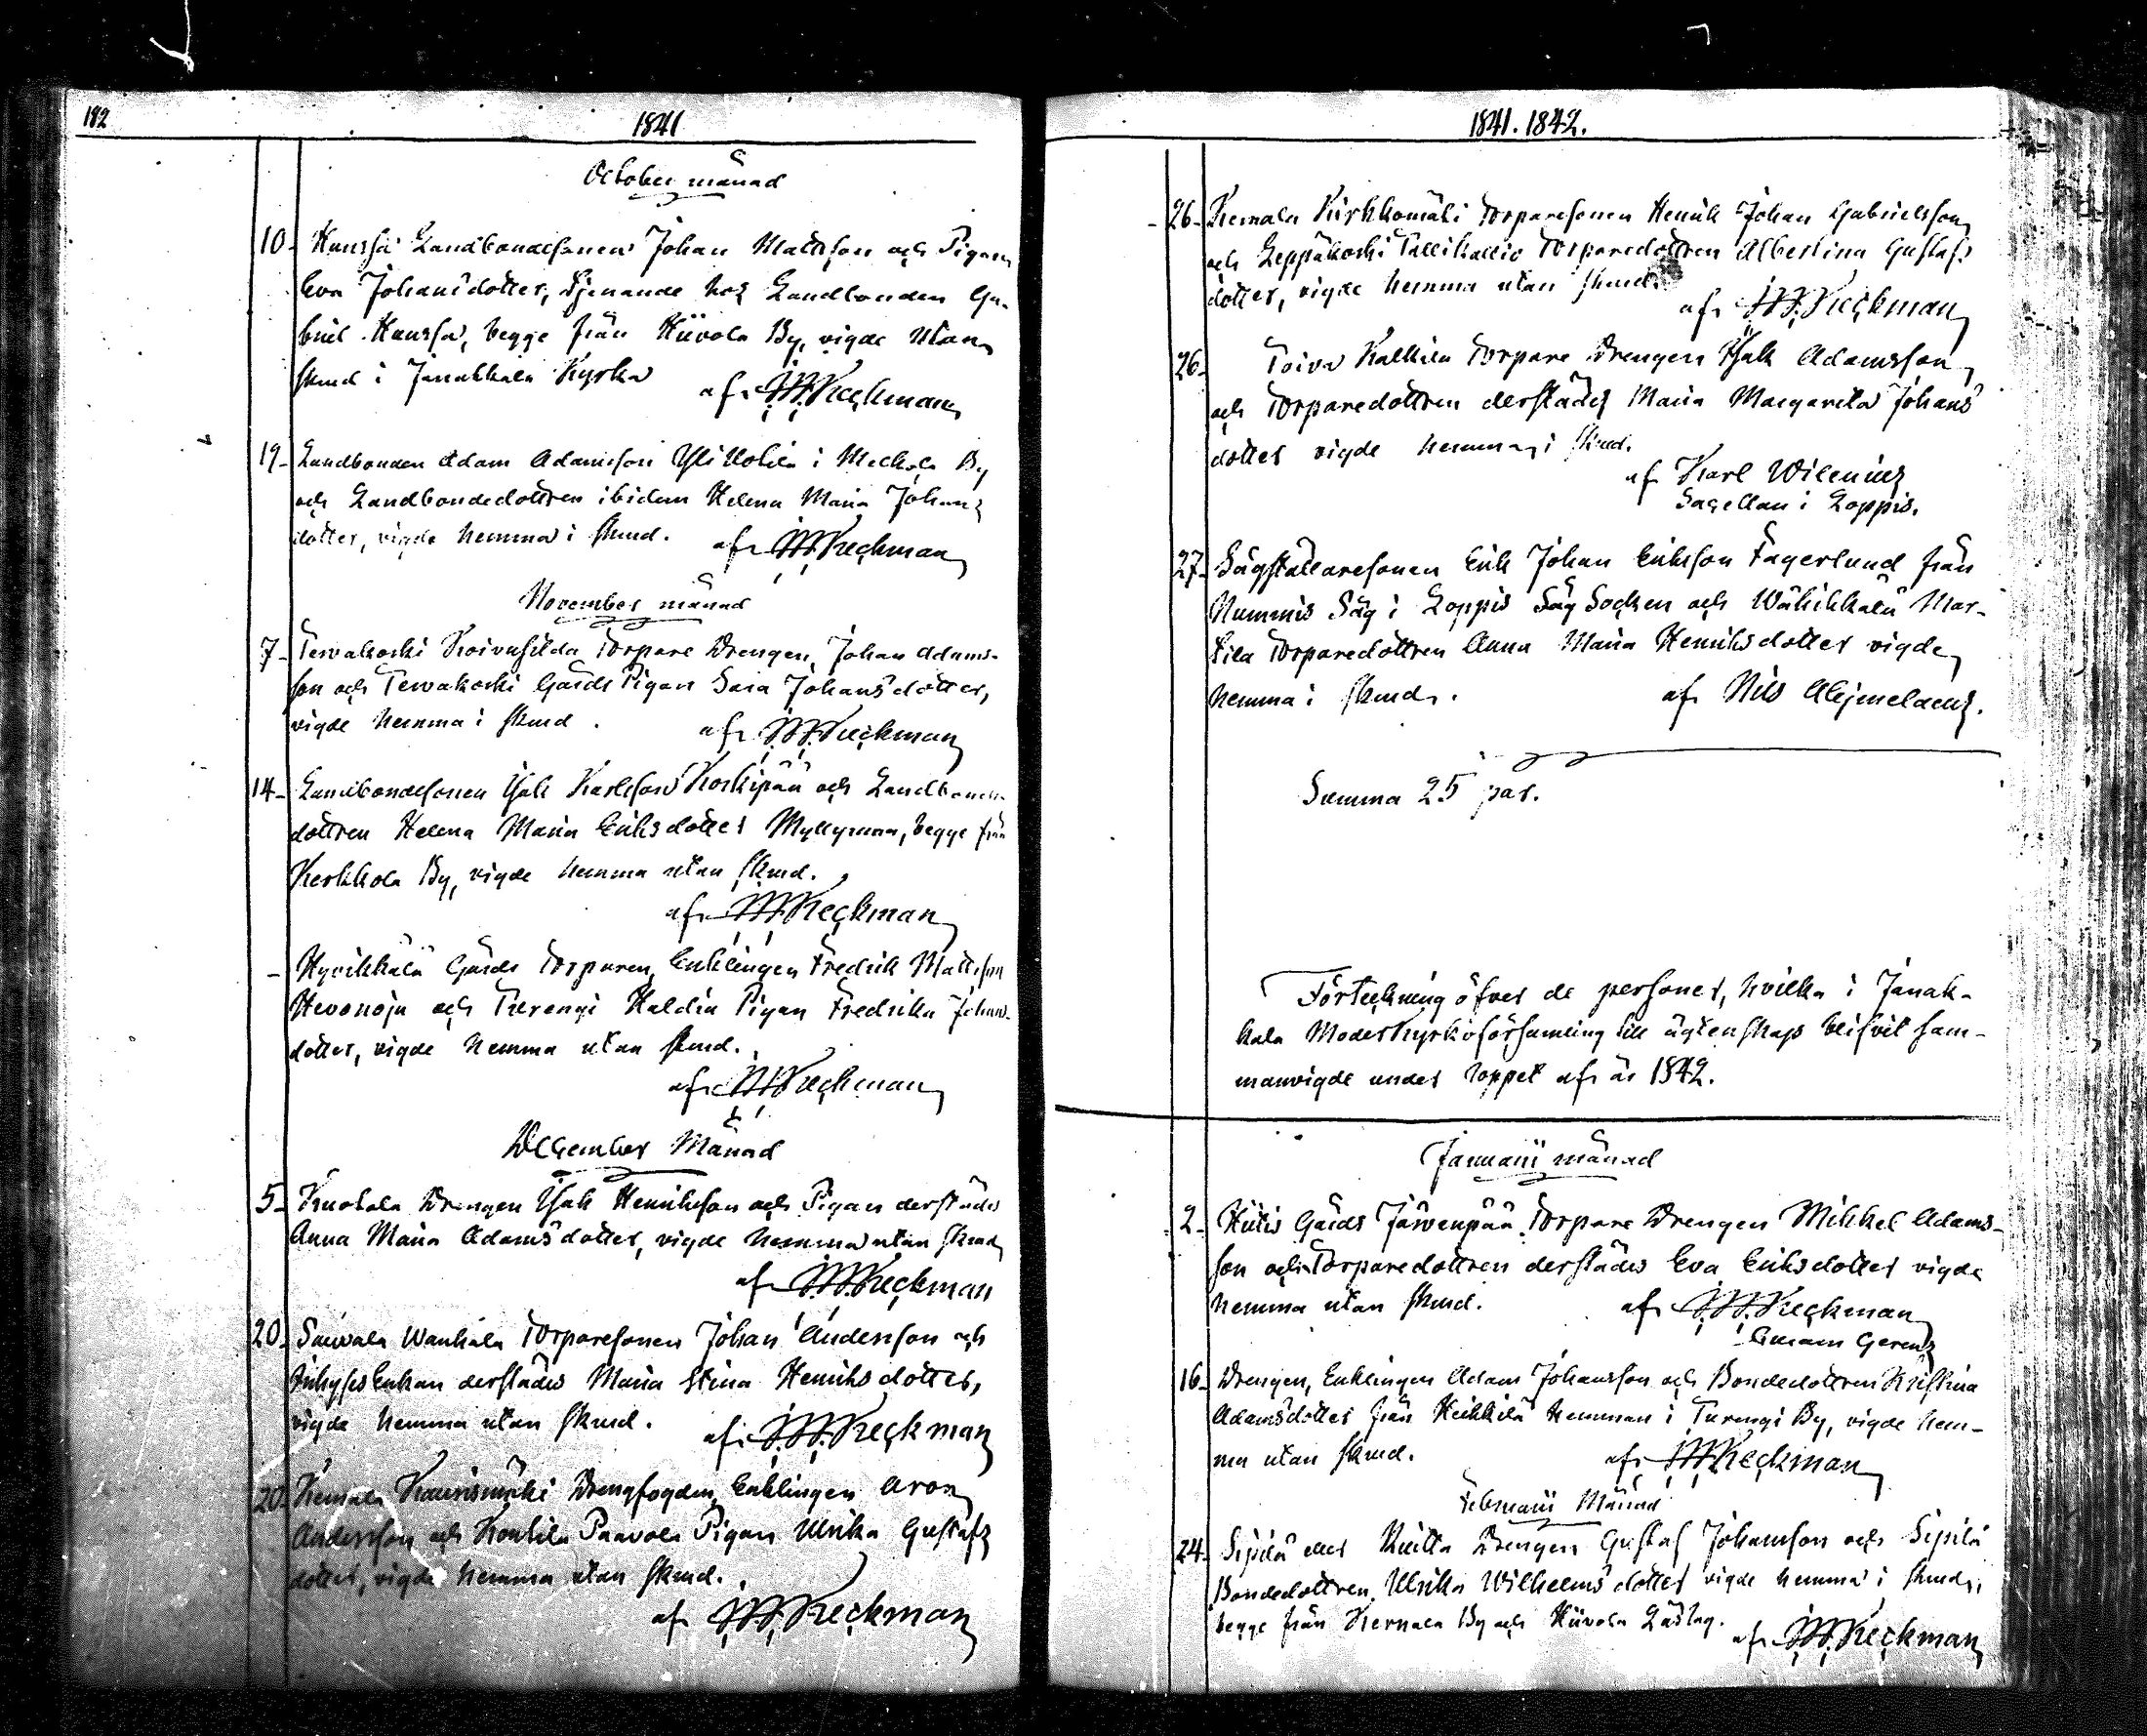 182
1841
October månad
10. Haussa Landbondesonen Johan Mattsson och Pigan
Eva Johansdotter, tjenande hos Landbonden Ga-
briel Haussa, begge från Hiivola By, vigde utan
skrud i Janakkala Kyrka
af J.W. Reckman
19. Landbonden Adam Adamsson Yli i By
och Landbondedottren ibidem Helena Maria Johans
dotter, vigde hemma i skrud.
af J.W. Reckman
November månad
7. Tervakoski Koivusilda Torpare Drengen, Johan Adams-
son och Tervakoski Gårds Pigan Sara Johansdotter,
vigde hemma i skrud.
af J.W. Reckman
14. Landbondesonen Isak Karlsson Koskipää och Landbonde-
dottren Helena Maria Eriksdotter Myllymaa, begge från
Kerkkola By, vigde hemma utan skrud.
af J.W. Reckman
- Hyvikkälä Gårds Torparen, Enklingen Fredrik Mattsson
Hevonoja och Turengi Haldia Pigan Fredrika Johans-
dotter, vigde hemma utan skrud.
af J.W. Reckman
December Månad
5. Knotala Drengen Isak Henriksson och Pigan derstädes
Anna Maria Adamsdotter, vigde hemma utan skrud
af J.W. Reckman
20. Sauvala Wanhala Torparesonen Johan Andersson och
Inhyses Enkan derstädes Maria Stina Henriksdotter,
vigde hemma utan skrud.
af J.W. Reckman
20. Kernala Drengfogden, Enklingen Aron
Andersson och Kontila Paavola Pigan Ulrika Gustafs
dotter, vigde hemma utan skrud.
af J.W. Reckman
1841. 1842.
26. Kernala Kirkkomäki Torparesonen Henrik Johan Gabrielsson
och Leppäkoski Tallikallio Torparedottren Albertina Gustafs
dotter, vigde hemma utan skrud.
af J.W. Reckman
26. Toiva Kalkila Torpare Drengen Isak Adamsson,
och Torparedottren derstädes Maria Margareta Johans
dotter vigde hemma i skrud.
af Karl Wilenius
Sacellan i Loppis.
27. Sågställaresonen Erik Johan Eriksson Fagerlund från
Nummis Såg i Loppis Såg Socken och Wähikkälä Mar-
tila Torparedottren Anna Maria Henriksdotter vigde
hemma i skrud.
af Nils Alcenius.
Summa 25 par.
Förteckning öfver de personer, hvilka i Janak-
kala Moderkyrkoförsamling till ägtenskap blifvit sam-
manvigde under loppet af år 1842.
Januarii månad
2. Hiitis Gårds Järvenpää Torpare Drengen Mikkel Adams-
son och Torparedottren derstädes Eva Eriksdotter vigde
hemma utan skrud.
af J.W. Reckman
16. Drengen, Enklingen Adam Johansson och Bondedottren Kristina
Adamsdotter från Heikkilä Hemman i Turengi By, vigde hem-
ma utan skrud.
af J.W. Reckman
Februarii Månad
24. Sipilä Drengen Gustaf Johansson och Sipilä
Bondedottren, Ulrika Wilhelmsdotter vigde hemma i skrud,
begge från Kernala By och Hiivola Låstag.
af J.W. Reckman